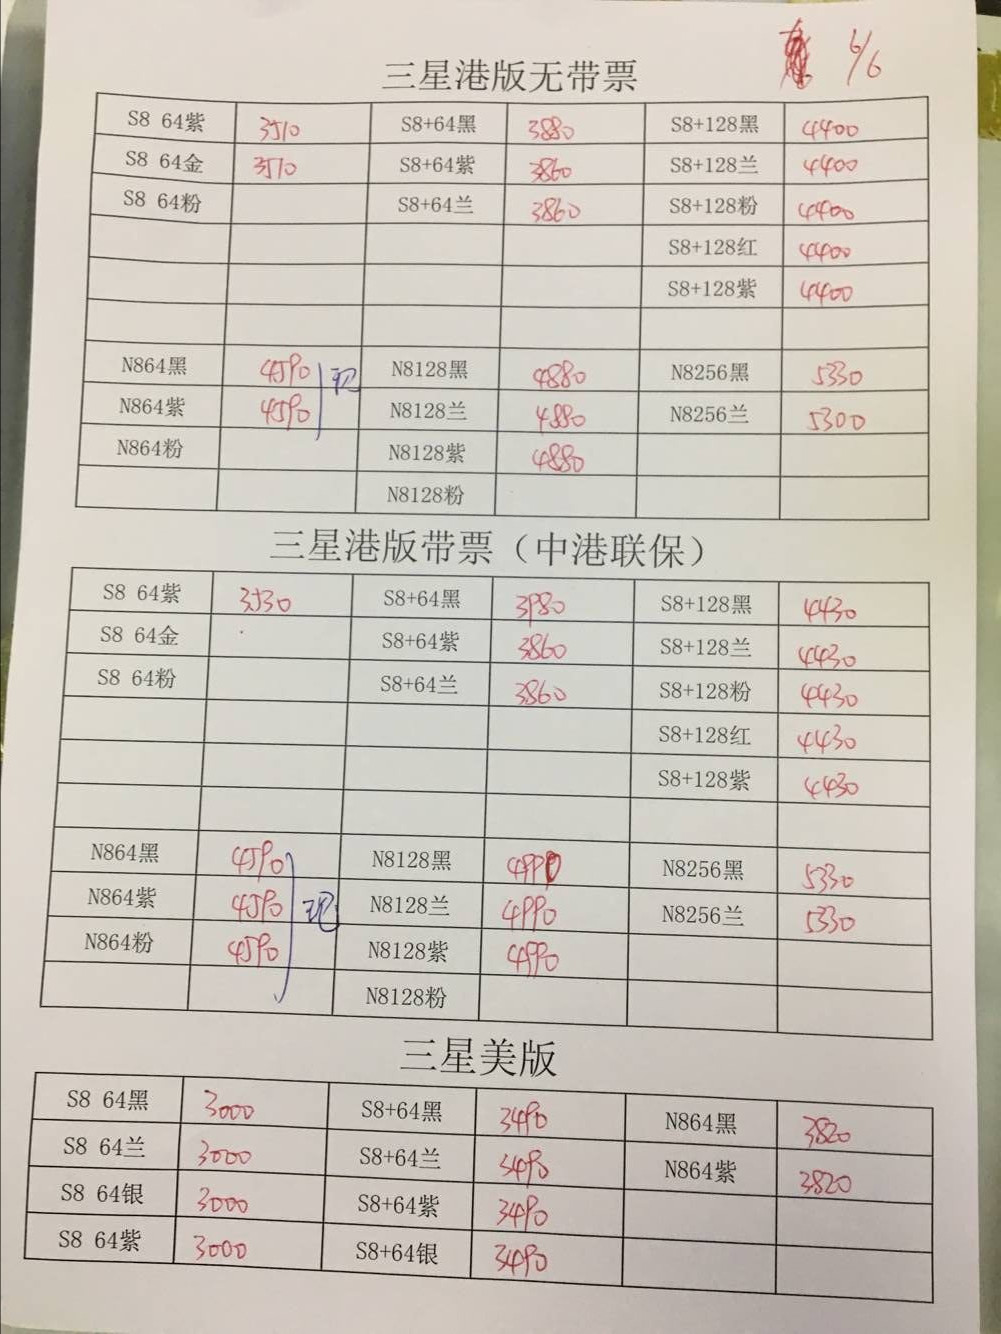 6/6
三星港版无带票
S8 64紫 3510 S8+64黑 3880 S8+128黑 4400
S8 64金 3510 S8+64紫 3860 S8+128兰 4400
S8 64粉 S8+64兰 3860 S8+128粉 4400
S8+128红 4400
S8+128紫 4400
N864黑 4590 现 N8128黑 4880 N8256黑 5330
N864紫 4590 N8128兰 4880 N8256兰 5300
N864粉 N8128紫 4880
N8128粉
三星港版带票（中港联保）
S8 64紫 3530 S8+64黑 3980 S8+128黑 4430
S8 64金 S8+64紫 3860 S8+128兰 4430
S8 64粉 S8+64兰 3860 S8+128粉 4430
S8+128红 4430
S8+128紫 4430
N864黑 4590 N8128黑 4990 N8256黑 5330
N864紫 4590 现 N8128兰 4990 N8256兰 5330
N864粉 4590 N8128紫 4990
N8128粉
三星美版
S8 64黑 3000 S8+64黑 3490 N864黑 3820
S8 64兰 3000 S8+64兰 3490 N864紫 3820
S8 64银 3000 S8+64紫 3490
S8 64紫 3000 S8+64银 3490